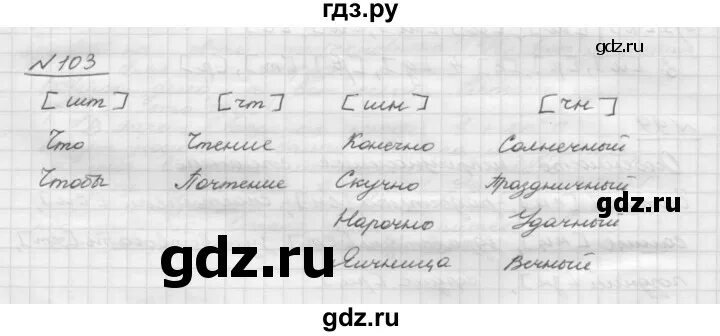 гдз.ру
gdz.ru
№103
[шт] [чт] [шн] [чн]
Что Чтение Конечно Солнечный
Чтобы Почтение Скучно Праздничный
gdz.ru
Нарочно Удачный
Яичница Вечный
gdz.ru
gdz.ru